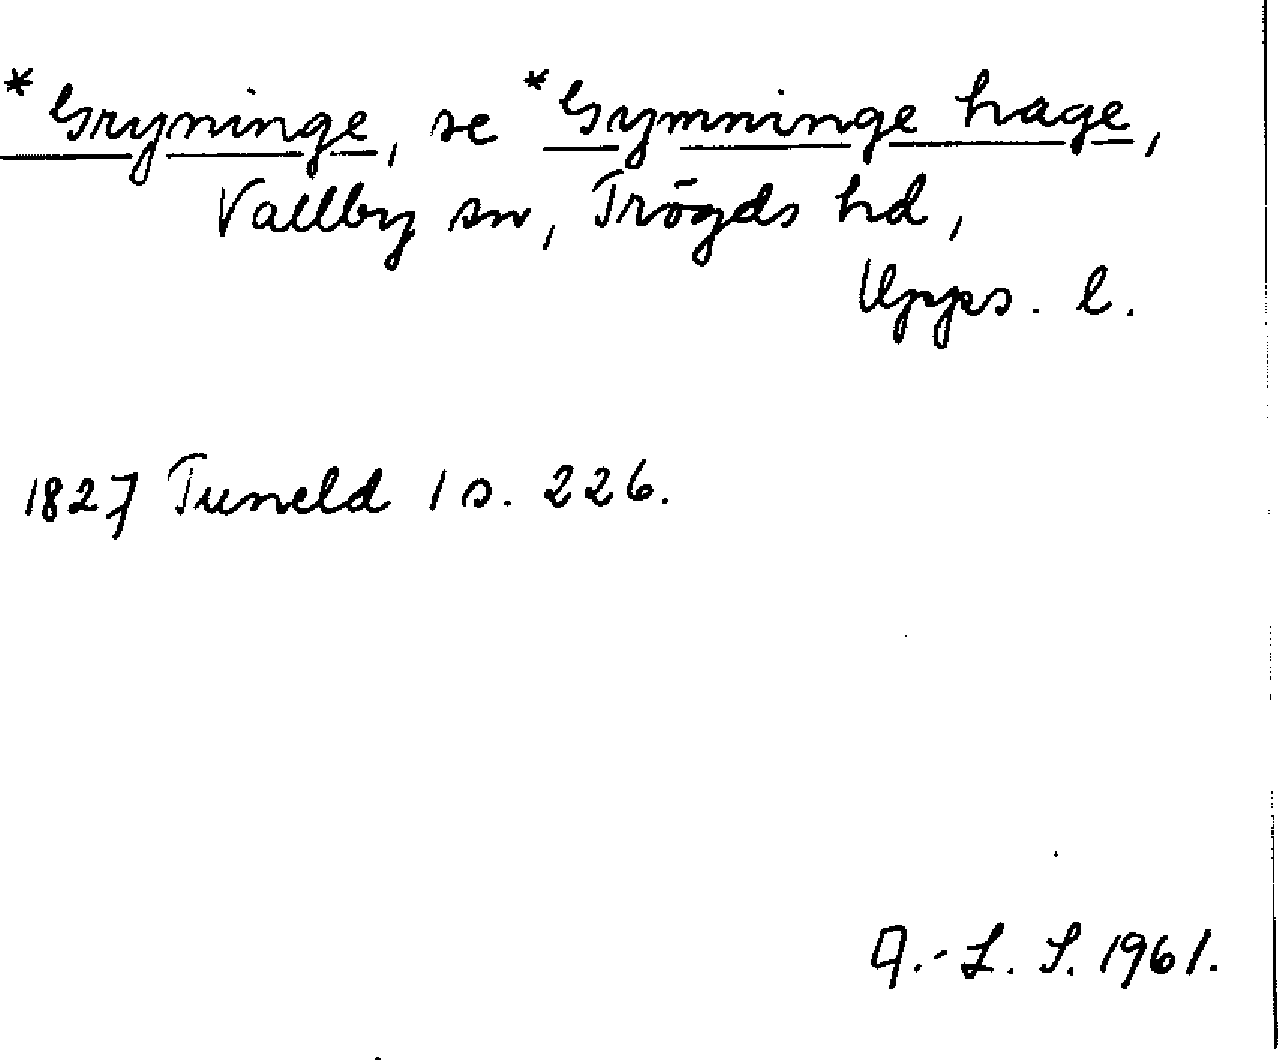 *Gryninge, se *Gymninge hage,
Vallby sn, Trögds hd,
Upps. l.
1827 Tuneld 1 s. 226.
A.-L. S. 1961.